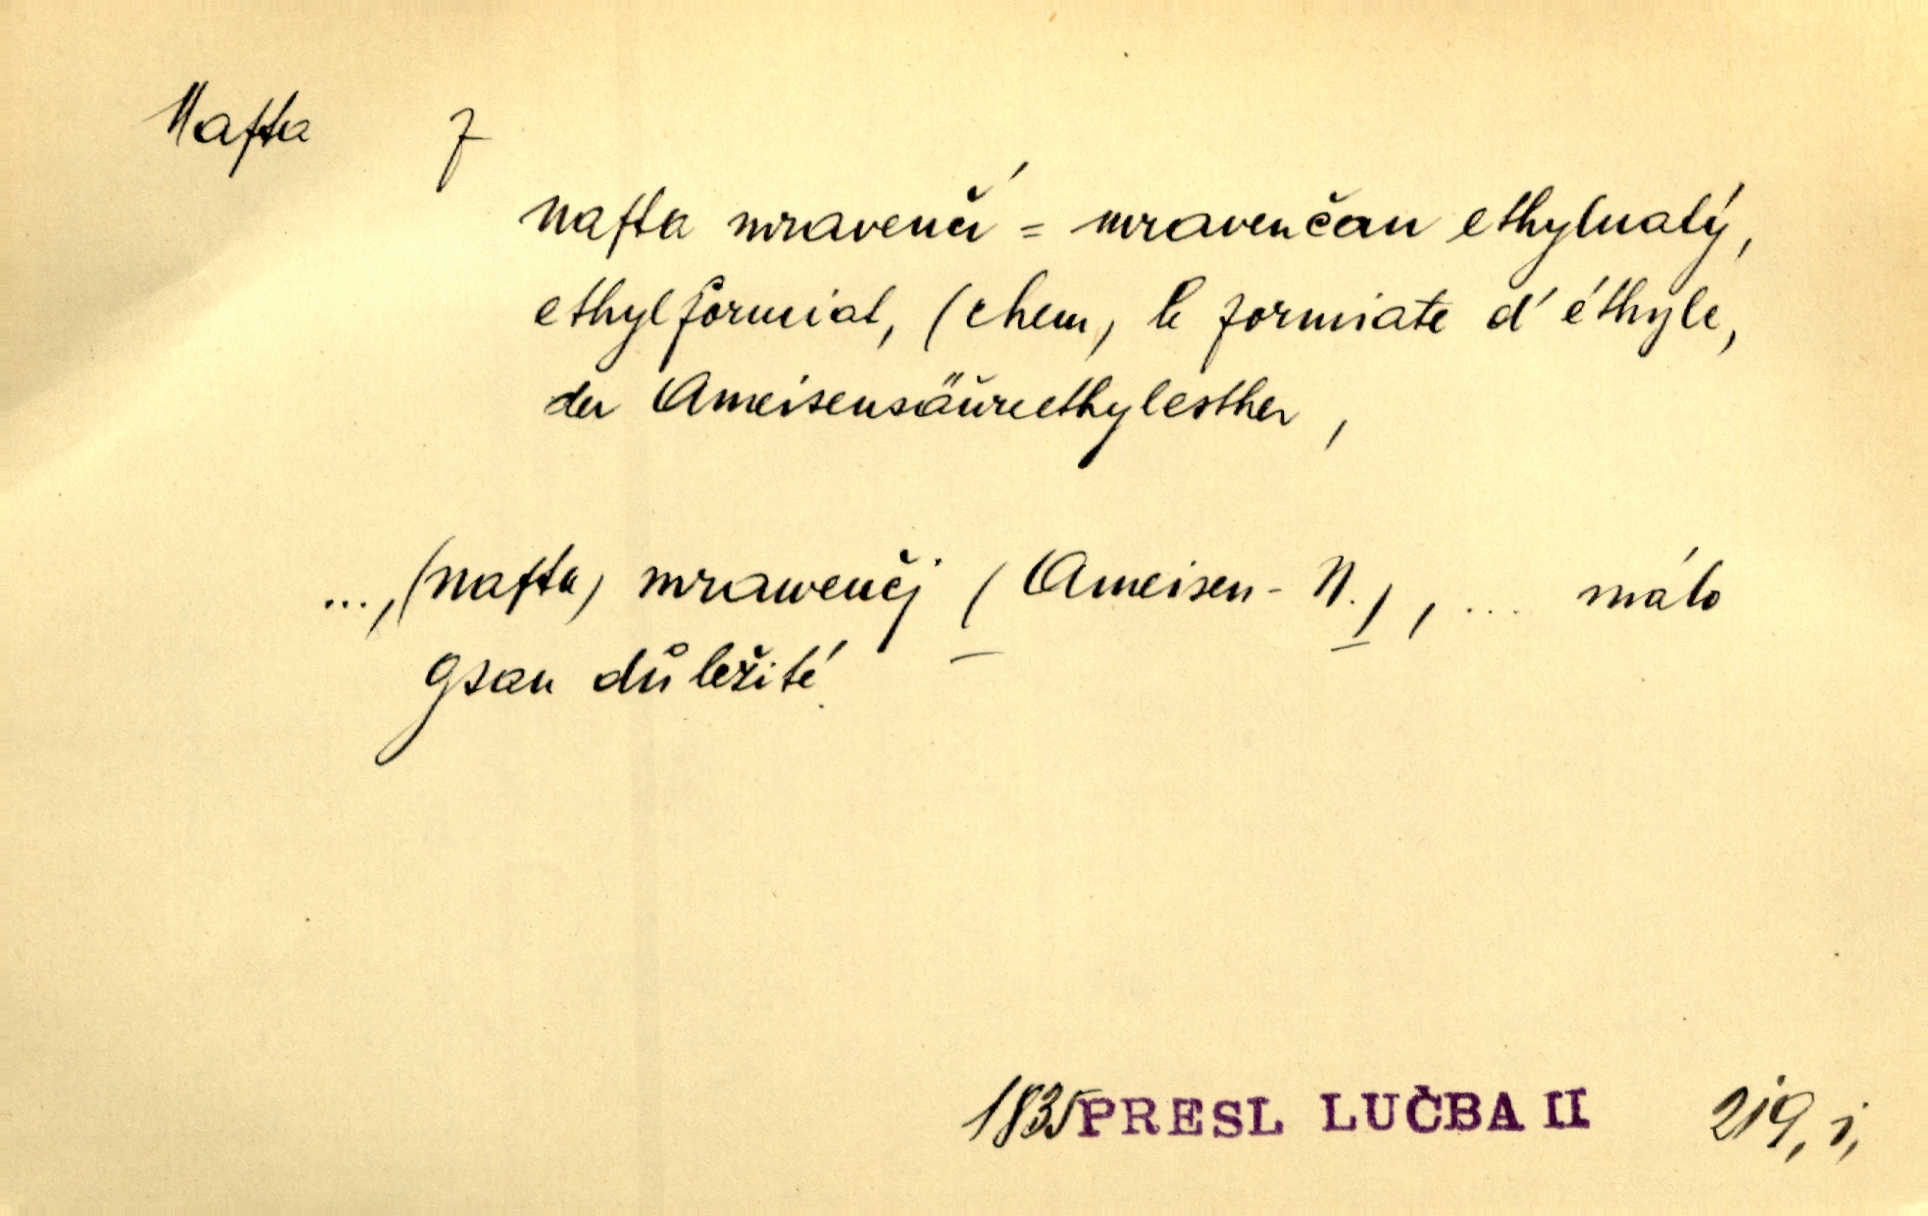 Nafta f
nafta mravenčí = mravenčan ethylnatý,
ethylformiat, (chem, le formiate d'éthyle,
der Ameisensäureethylesther,
..., (nafta) mrawenčj (Ameisen-N.), ... málo
gsau důležité.
1835 PRESL LUČBA II 219, j,